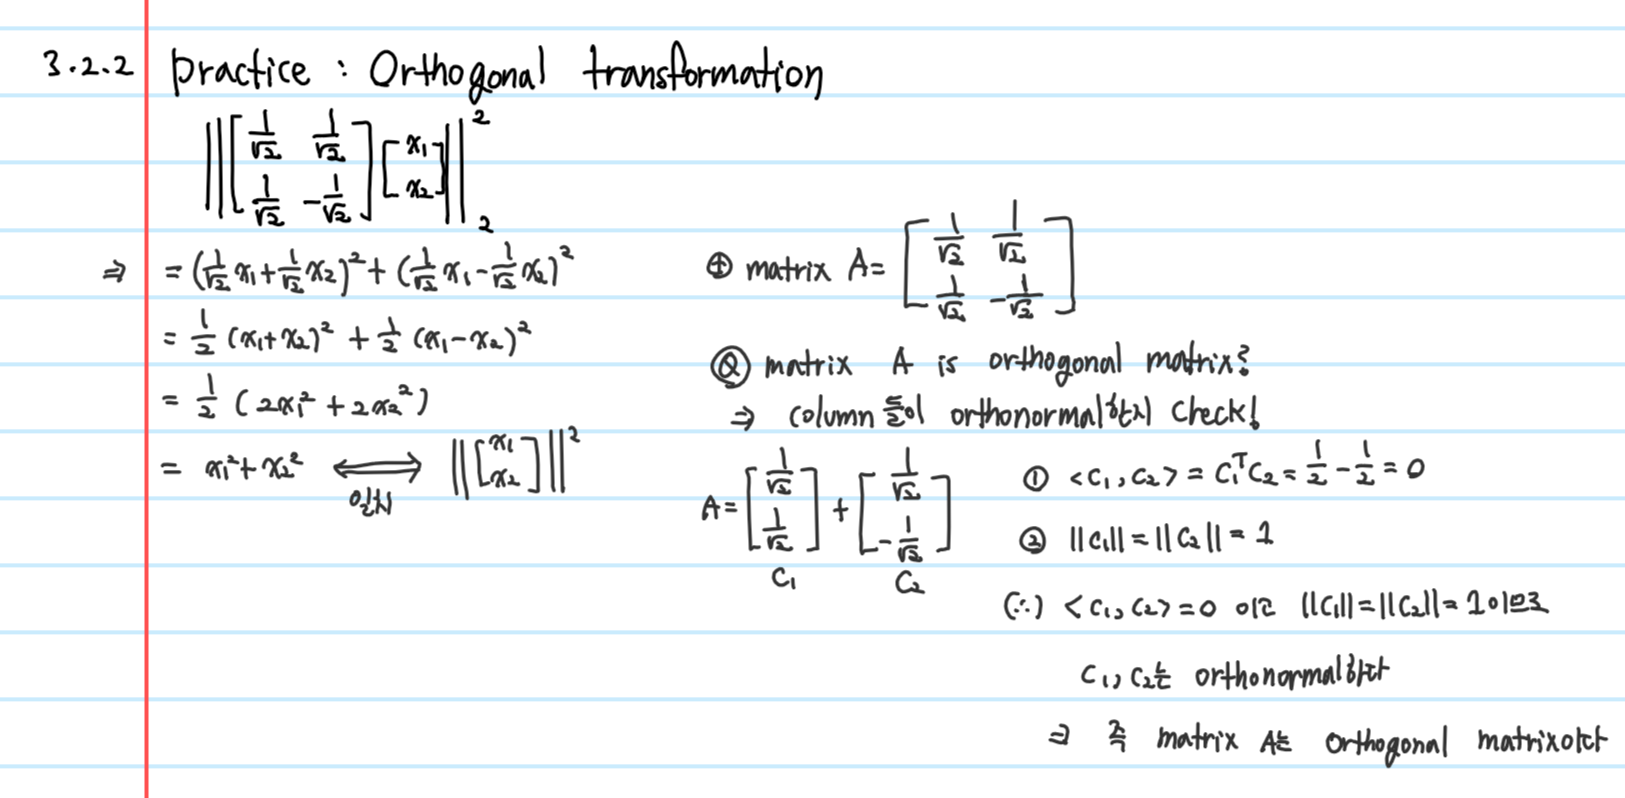 3.2.2 practice : Orthogonal transformation
‖[1/√2 1/√2; 1/√2 -1/√2][x₁; x₂]‖₂²
⇒ = (1/√2 x₁ + 1/√2 x₂)² + (1/√2 x₁ - 1/√2 x₂)²
= 1/2 (x₁+x₂)² + 1/2 (x₁-x₂)²
= 1/2 (2x₁² + 2x₂²)
= x₁²+x₂² ⟺ ‖[x₁; x₂]‖²
일치
⊕ matrix A= [1/√2 1/√2; 1/√2 -1/√2]
Ⓠ matrix A is orthogonal matrix?
⇒ column들이 orthonormal한지 check!
A= [1/√2; 1/√2] + [1/√2; -1/√2]
C₁ C₂
① <C₁, C₂> = C₁ᵀC₂ = 1/2 - 1/2 = 0
② ‖C₁‖ = ‖C₂‖ = 1
(∴) <C₁, C₂> = 0 이고 ‖C₁‖=‖C₂‖= 1이므로
C₁, C₂는 orthonormal하다
⇒ 즉 matrix A는 orthogonal matrix이다